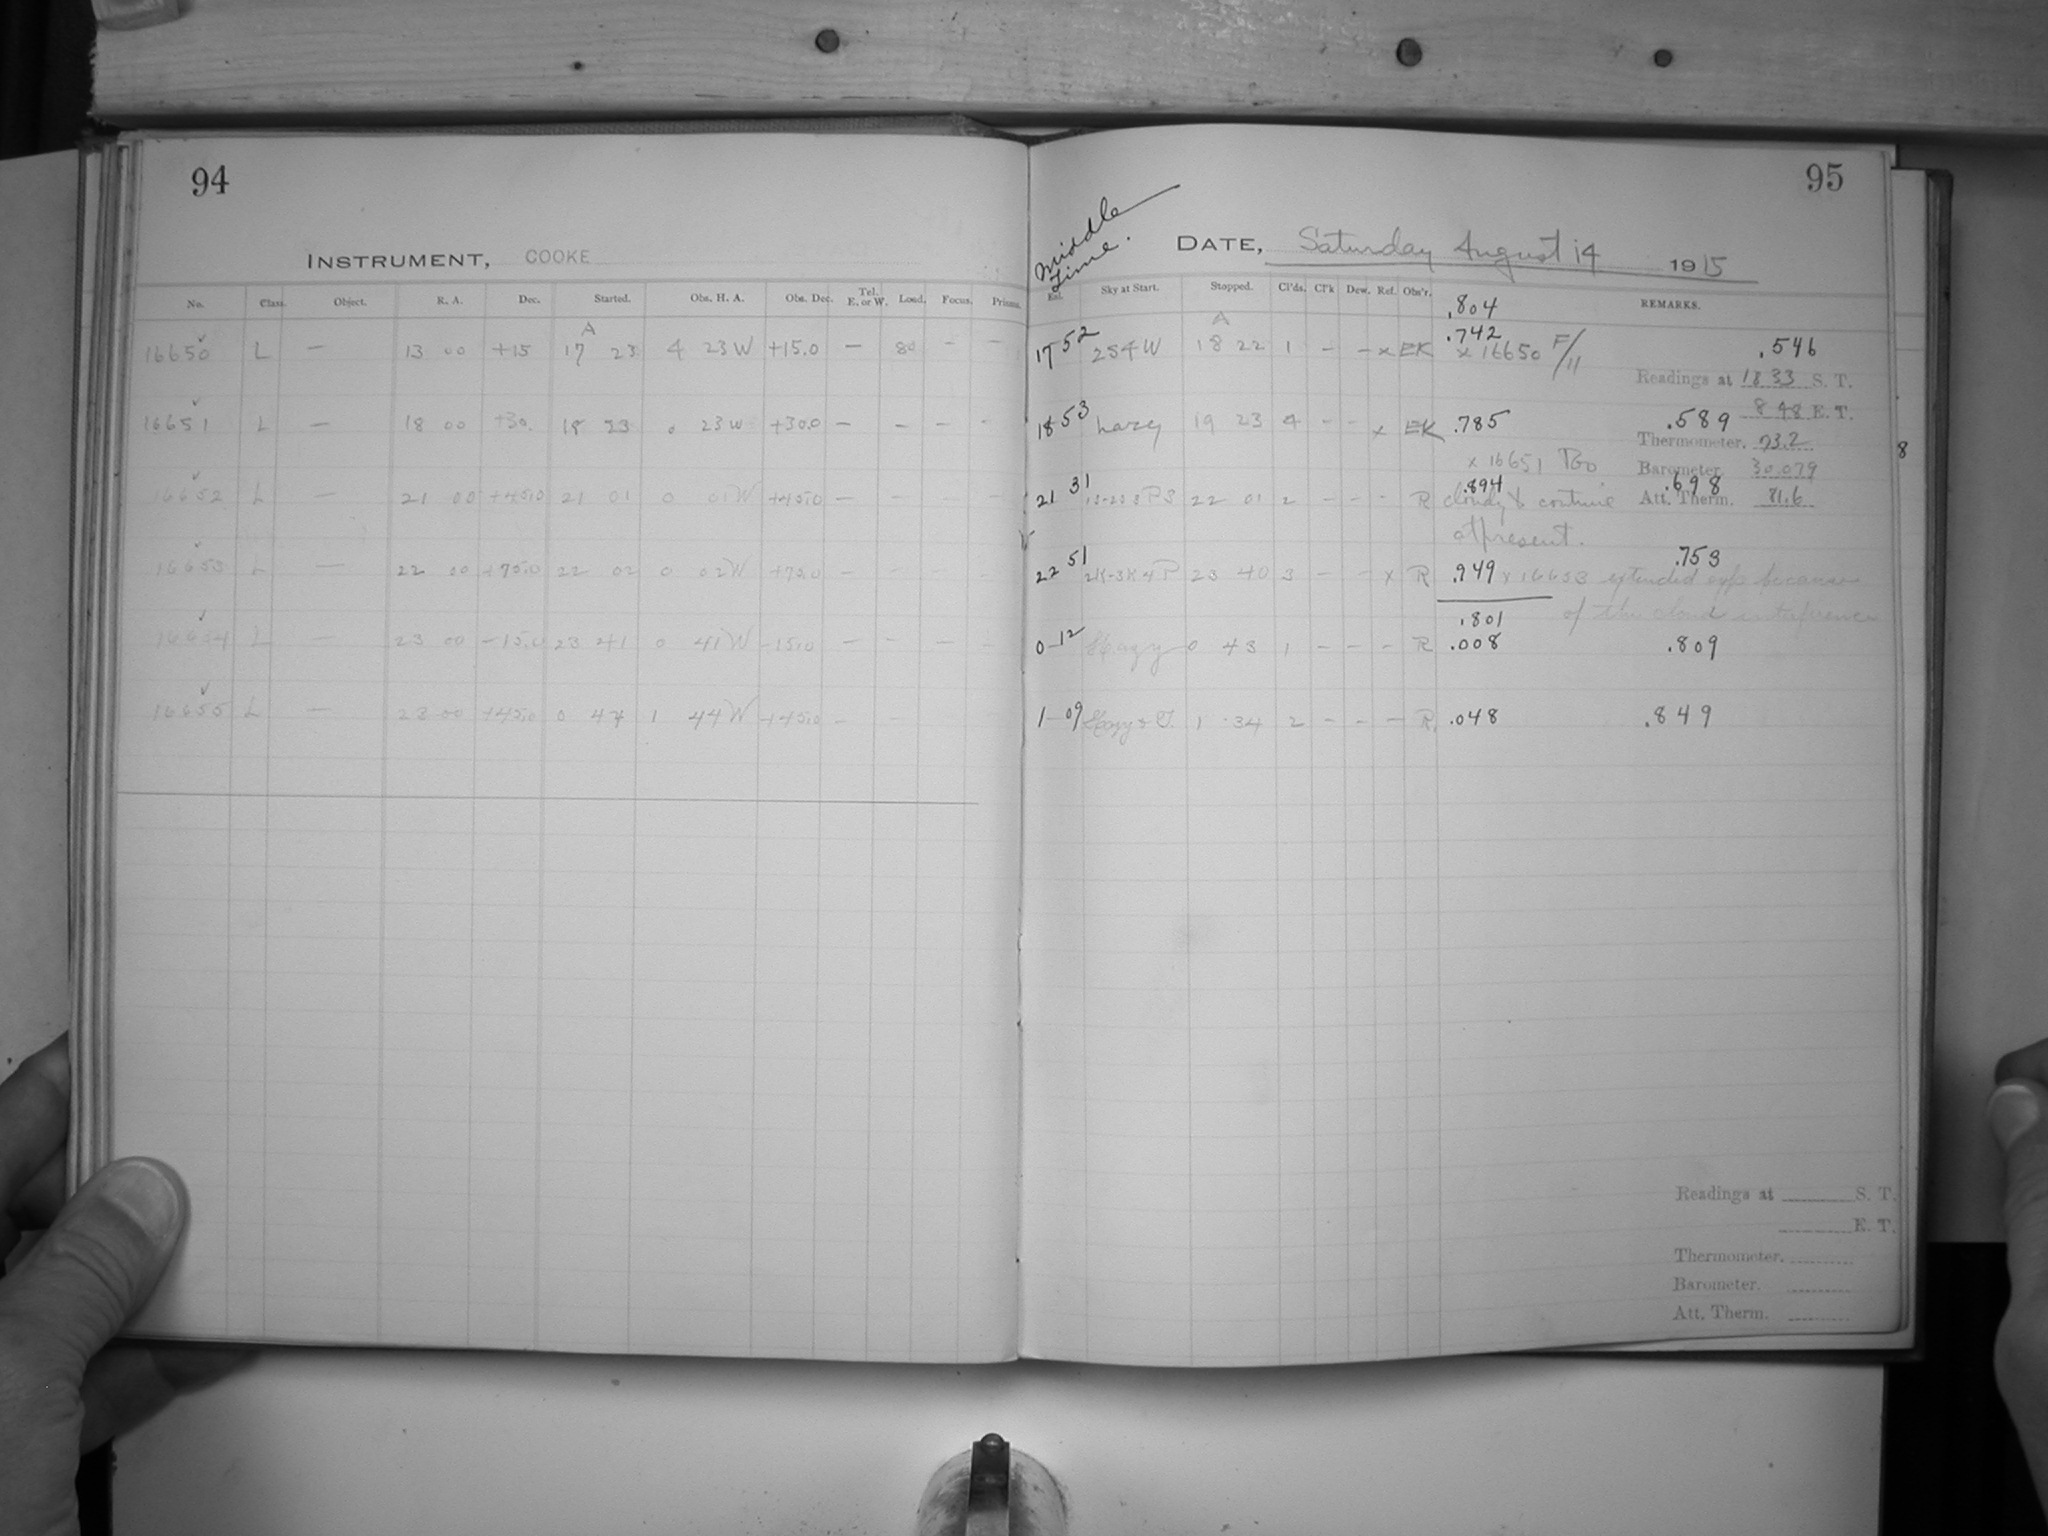 94
INSTRUMENT, COOKE
No. Class. Object. R. A. Dec. Started. Obs. H. A. Obs. Dec. Tel. E. or W. Load. Focus. Prisms.
A
16650 L — 13 00 +15 17 23 4 23 W +15.0 — 80 - -
16651 L — 18 00 +30. 18 23 0 23 W +30.0 — - - -
16652 L — 21 00 +45.0 21 01 0 01 W +45.0 — - - -
16653 L — 22 00 +75.0 22 02 0 02 W +75.0 - - - -
16654 L — 23 00 -15.0 23 41 0 41 W -15.0 - - - -
16655 L — 23 00 +45.0 0 47 1 44 W +45.0 - -
95
Middle Time.
DATE, Saturday August 14 1915
Exl. Sky at Start. Stopped. Cl'ds. Cl'k Dew. Ref. Obs'r. REMARKS.
.804
A
17 52 2S4W 18 22 1 - - x EK .742
x 16650 F/11 .546
Readings at 18 33 S. T.
8 48 E. T.
18 53 hazy 19 23 4 - - x EK .785 .589
Thermometer. 73.2
x 16651 Too Barometer. 30.079
.894 .698
21 31 22 01 2 - - - R cloudy to continue Att. Therm. 81.6
at present.
.753
22 51 2K-3K4P 23 40 3 - - x R .949 x 16653 extended exp because
of the cloud interference
.801
0-12 Hazy 0 43 1 - - - R .008 .809
1-09 Hazy 1 34 2 - - - R. .048 .849
8
Readings at S. T.
E. T.
Thermometer.
Barometer.
Att. Therm.